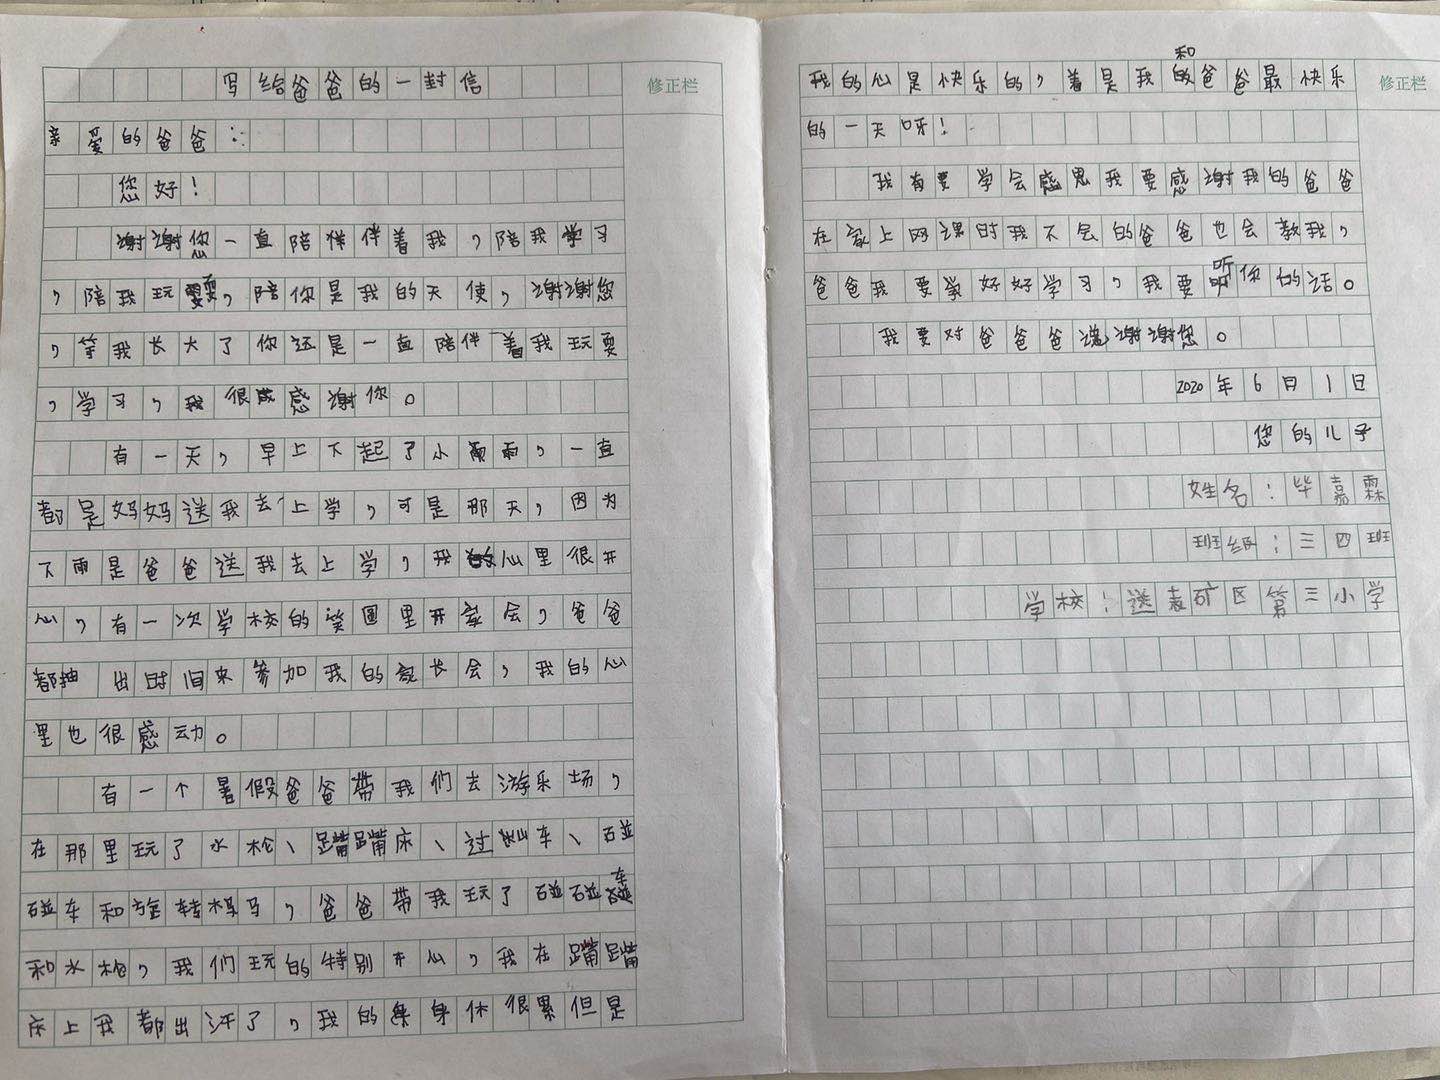 写给爸爸的一封信
修正栏
亲爱的爸爸:
您好!
谢谢您一直陪伴伴着我,陪我学习
,陪我玩耍,陪你是我的天使,谢谢您
,等我长大了你还是一直陪伴着我玩耍
,学习,我很感谢你。
有一天,早上下起了小雨,一直
都是妈妈送我去上学,可是那天,因为
下雨是爸爸送我去上学,我心里很开
心,有一次学校的里开家会,爸爸
都抽出时间来参加我的家长会,我的心
里也很感动。
有一个暑假爸爸带我们去游乐场,
在那里玩了水枪、蹦蹦床、过山车、碰
碰车和旋转木马,爸爸带我玩了碰碰车
和水枪,我们玩的特别开心,我在蹦蹦
床上我都出汗了,我的身体很累但是
我的心是快乐的,着是我和爸爸最快乐
修正栏
的一天呀!
我有要学会感恩我要感谢我的爸爸
在家上网课时我不会的爸爸也会教我,
爸爸我要学好好学习,我要听你的话。
我要对爸爸爸说谢谢您。
2020年6月1日
您的儿子
姓名:毕嘉霖
班级:三四班
学校:送表矿区第三小学